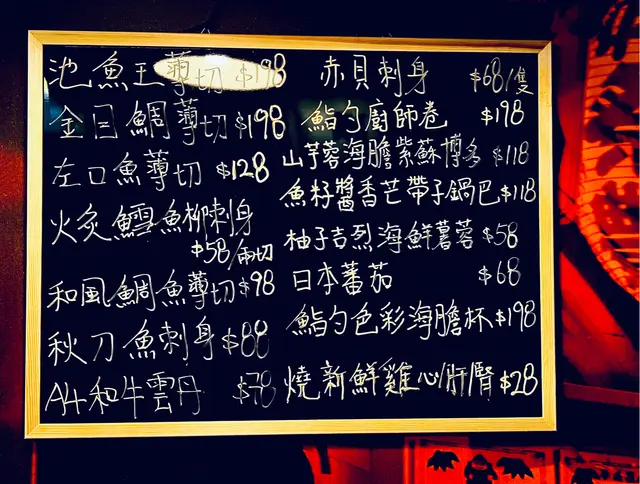 池魚王薄切 $198
金目鯛薄切 $198
左口魚薄切 $128
火炙鱈魚柳刺身
$58/兩切
和風鯛魚薄切 $98
秋刀魚刺身 $88
A4和牛雲丹 $78
赤貝刺身 $68/隻
鮨勺廚師卷 $198
山芋蓉海膽紫蘇博多 $118
魚籽醬香芒帶子鍋巴 $118
柚子吉列海鮮薯蓉 $58
日本蕃茄 $68
鮨勺色彩海膽杯 $198
燒新鮮雞心/肝/腎 $28